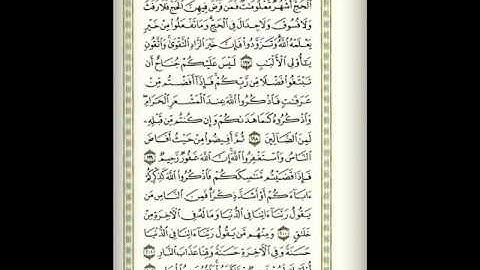 ٱلْحَجُّ أَشْهُرٌ مَّعْلُومَٰتٌ فَمَن فَرَضَ فِيهِنَّ ٱلْحَجَّ فَلَا رَفَثَ
وَلَا فُسُوقَ وَلَا جِدَالَ فِى ٱلْحَجِّ وَمَا تَفْعَلُوا۟ مِنْ خَيْرٍ
يَعْلَمْهُ ٱللَّهُ وَتَزَوَّدُوا۟ فَإِنَّ خَيْرَ ٱلزَّادِ ٱلتَّقْوَىٰ وَٱتَّقُونِ
يَٰٓأُو۟لِى ٱلْأَلْبَٰبِ ١٩٧ لَيْسَ عَلَيْكُمْ جُنَاحٌ أَن
تَبْتَغُوا۟ فَضْلًا مِّن رَّبِّكُمْ فَإِذَآ أَفَضْتُم مِّنْ
عَرَفَٰتٍ فَٱذْكُرُوا۟ ٱللَّهَ عِندَ ٱلْمَشْعَرِ ٱلْحَرَامِ
وَٱذْكُرُوهُ كَمَا هَدَىٰكُمْ وَإِن كُنتُم مِّن قَبْلِهِۦ
لَمِنَ ٱلضَّآلِّينَ ١٩٨ ثُمَّ أَفِيضُوا۟ مِنْ حَيْثُ أَفَاضَ
ٱلنَّاسُ وَٱسْتَغْفِرُوا۟ ٱللَّهَ إِنَّ ٱللَّهَ غَفُورٌ رَّحِيمٌ ١٩٩
فَإِذَا قَضَيْتُم مَّنَٰسِكَكُمْ فَٱذْكُرُوا۟ ٱللَّهَ كَذِكْرِكُمْ
ءَابَآءَكُمْ أَوْ أَشَدَّ ذِكْرًا فَمِنَ ٱلنَّاسِ مَن
يَقُولُ رَبَّنَآ ءَاتِنَا فِى ٱلدُّنْيَا وَمَا لَهُۥ فِى ٱلْءَاخِرَةِ مِنْ
خَلَٰقٍ ٢٠٠ وَمِنْهُم مَّن يَقُولُ رَبَّنَآ ءَاتِنَا فِى ٱلدُّنْيَا
حَسَنَةً وَفِى ٱلْءَاخِرَةِ حَسَنَةً وَقِنَا عَذَابَ ٱلنَّارِ ٢٠١